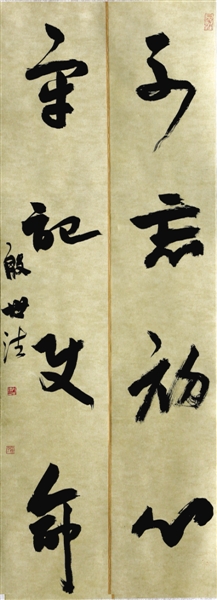 不忘初心
牢记使命
殷世法